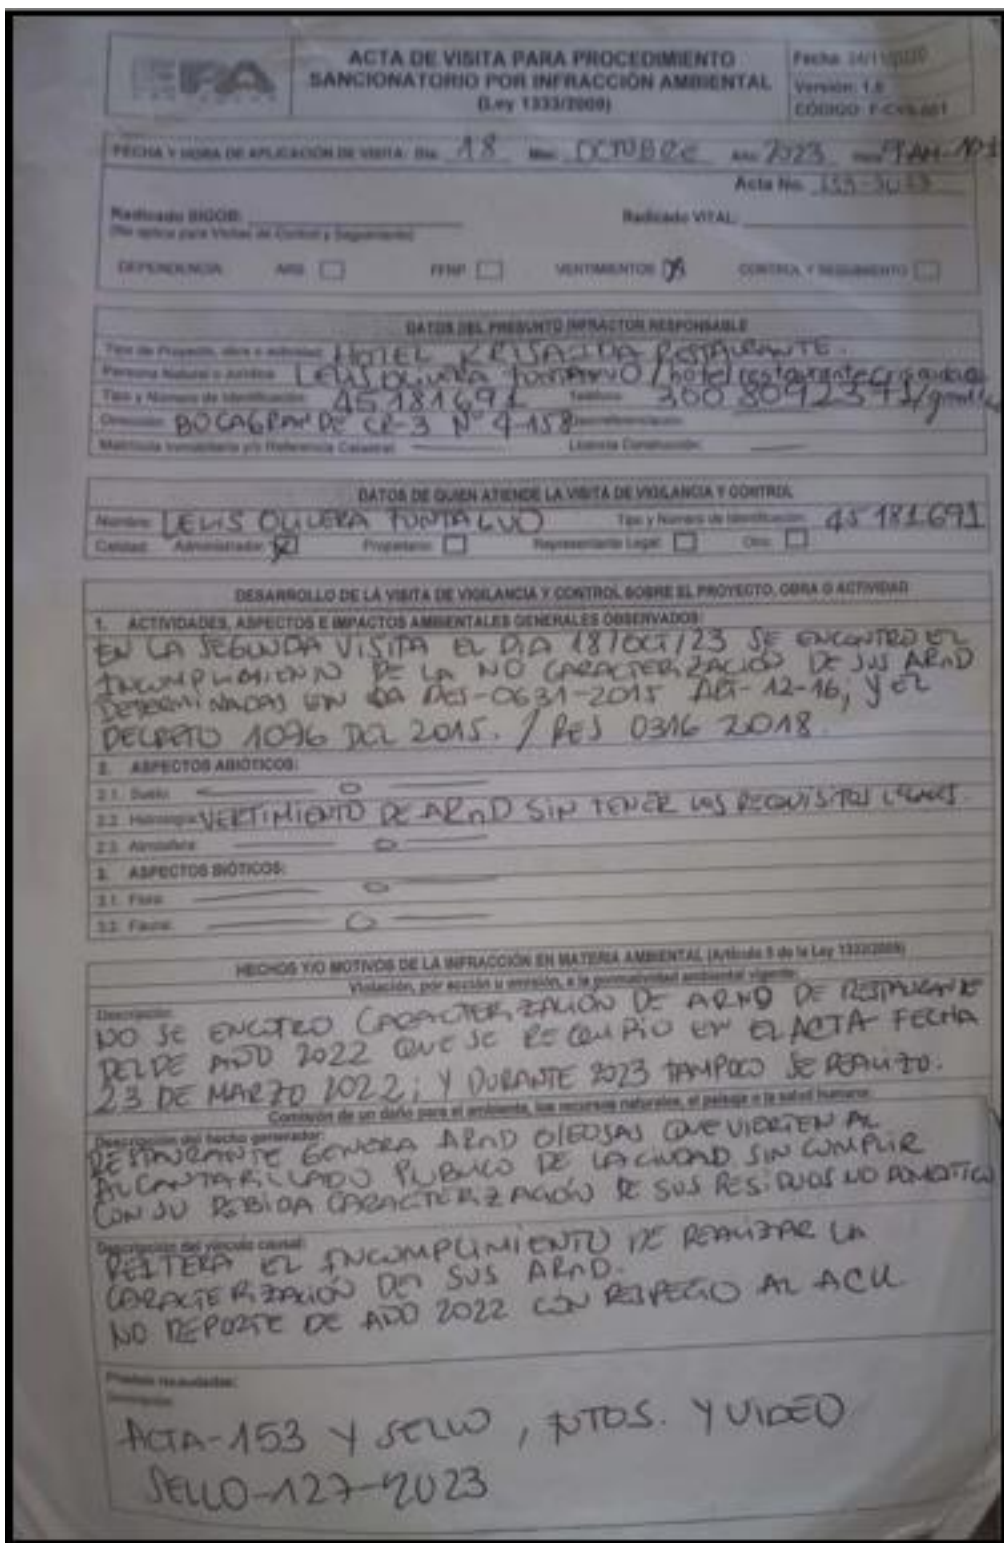 EPA
ACTA DE VISITA PARA PROCEDIMIENTO
SANCIONATORIO POR INFRACCIÓN AMBIENTAL
(Ley 1333/2009)
Fecha: 24/11/2020
Versión: 1.0
CÓDIGO: F-CVS-001
FECHA Y HORA DE APLICACIÓN DE VISITA: Día: 18 Mes: OCTOBRE Año: 2023 Hora: 9 AM-10
Acta No. 153-2023
Radicado SIGOB:
Radicado VITAL:
(No aplica para Visitas de Control y Seguimiento)
DEPENDENCIA: FFRP VERTIMIENTOS X CONTROL Y SEGUIMIENTO
DATOS DEL PRESUNTO INFRACTOR RESPONSABLE
Tipo de Proyecto, obra o actividad: HOTEL RESTAURANTE.
Persona Natural o Jurídica: LELIS OLIVERA
Tipo y Número de Identificación: 45181691 Teléfono: 300 8092391
Dirección: BOCAGRANDE CR-3 Nº 4-158 Georreferenciación:
Matrícula Inmobiliaria y/o Referencia Catastral: Licencia Construcción:
DATOS DE QUIEN ATIENDE LA VISITA DE VIGILANCIA Y CONTROL
Nombre: LELIS OLIVERA FONTALVO Tipo y Número de Identificación: 45 181.691
Calidad: Administrador: X Propietario: Representante Legal: Otro:
DESARROLLO DE LA VISITA DE VIGILANCIA Y CONTROL SOBRE EL PROYECTO, OBRA O ACTIVIDAD
1. ACTIVIDADES, ASPECTOS E IMPACTOS AMBIENTALES GENERALES OBSERVADOS:
EN LA SEGUNDA VISITA EL DIA 18/OCT/23 SE ENCONTRO EL
INCUMPLIMIENTO DE LA NO CARACTERIZACIÓN DE SUS ARnD
DETERMINADAS EN LA RES-0631-2015 ART-12-16, Y EL
DECRETO 1096 DEL 2015. / RES 0316 2018.
2. ASPECTOS ABIÓTICOS:
2.1. Suelo:
2.2. Hidrología: VERTIMIENTO DE ARnD SIN TENER LOS REQUISITOS LEGALES.
2.3. Atmósfera:
3. ASPECTOS BIÓTICOS:
3.1. Flora:
3.2. Fauna:
HECHOS Y/O MOTIVOS DE LA INFRACCIÓN EN MATERIA AMBIENTAL (Artículo 5 de la Ley 1333/2009)
Violación, por acción u omisión, a la normatividad ambiental vigente:
Descripción:
NO SE ENCOTRO CARACTERIZACIÓN DE ARND DE RESTAURANTE
DEL DE AÑO 2022 QUE SE EN EL ACTA FECHA
23 DE MARZO 2022; Y DURANTE 2023 TAMPOCO SE REALIZO.
Comisión de un daño para el ambiente, los recursos naturales, el paisaje o la salud humana:
Descripción del hecho generador:
RESTAURANTE GENERA ARND OLEOSAS QUE VIERTEN AL
ALCANTARILLADO PUBLICO DE LA CIUDAD SIN CUMPLIR
CON SU DEBIDA CARACTERIZACIÓN DE SUS RESIDUOS NO DOMESTICO
Descripción del vínculo causal:
REITERA EL INCUMPLIMIENTO DE REALIZAR LA
CARACTERIZACIÓN DE SUS ARND.
NO REPORTE DE AÑO 2022 CON RESPECTO AL ACU
Pruebas recaudadas:
Descripción:
ACTA-153 Y SELLO, FOTOS. Y VIDEO
SELLO-127-2023